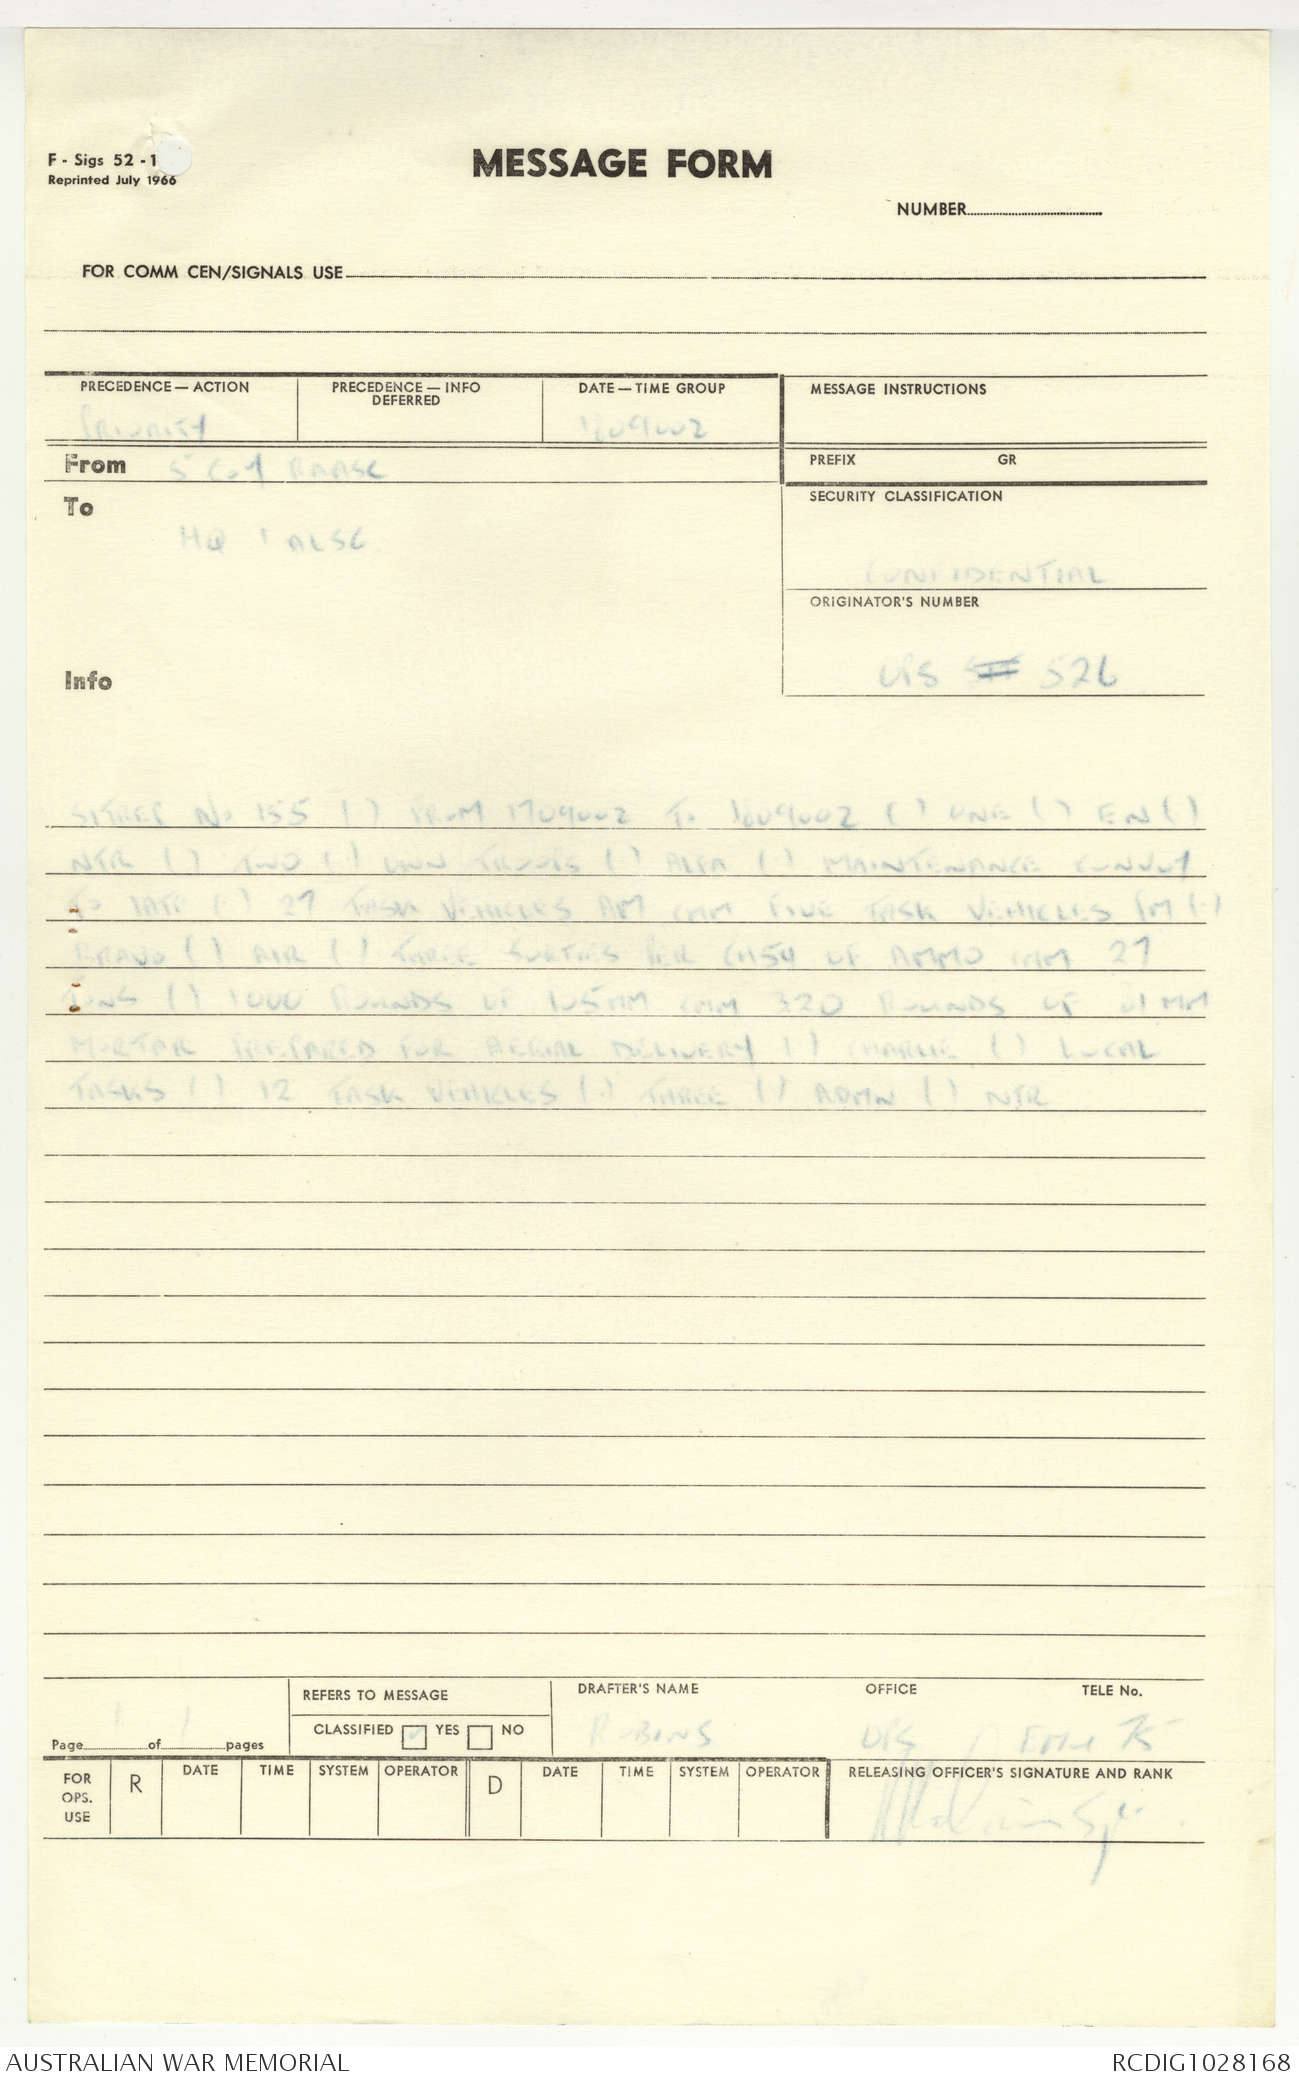 F - Sigs 52 - 1
Reprinted July 1966
MESSAGE FORM
NUMBER
FOR COMM CEN/SIGNALS USE
PRECEDENCE — ACTION
PRIORITY
PRECEDENCE — INFO
DEFERRED
DATE — TIME GROUP
180900Z
MESSAGE INSTRUCTIONS
From 5 Coy RAASC
PREFIX GR
To
HQ 1 ALSG
SECURITY CLASSIFICATION
CONFIDENTIAL
ORIGINATOR'S NUMBER
OPS 526
Info
SITREP No 155 ( ) FROM 170900Z TO 180900Z ( ) ONE ( ) EN ( )
NTR ( ) TWO (.) OWN TROOPS ( ) ALFA (.) MAINTENANCE CONVOY
TO 1ATF (.) 27 TASK VEHICLES AM CMM FIVE TASK VEHICLES PM (.)
BRAVO ( ) AIR (.) THREE SORTIES PER CH54 OF AMMO CMM 27
TONS ( ) 1000 ROUNDS OF 105MM CMM 320 ROUNDS OF 81MM
MORTAR PREPARED FOR AERIAL DELIVERY ( ) CHARLIE ( ) LOCAL
TASKS ( ) 12 TASK VEHICLES (.) THREE ( ) ADMN ( ) NTR
Page 1 of 1 pages
REFERS TO MESSAGE
CLASSIFIED YES NO
DRAFTER'S NAME
ROBINS
OFFICE
OPS
TELE No.
75
FOR OPS. USE R DATE TIME SYSTEM OPERATOR D DATE TIME SYSTEM OPERATOR
RELEASING OFFICER'S SIGNATURE AND RANK
AUSTRALIAN WAR MEMORIAL
RCDIG1028168